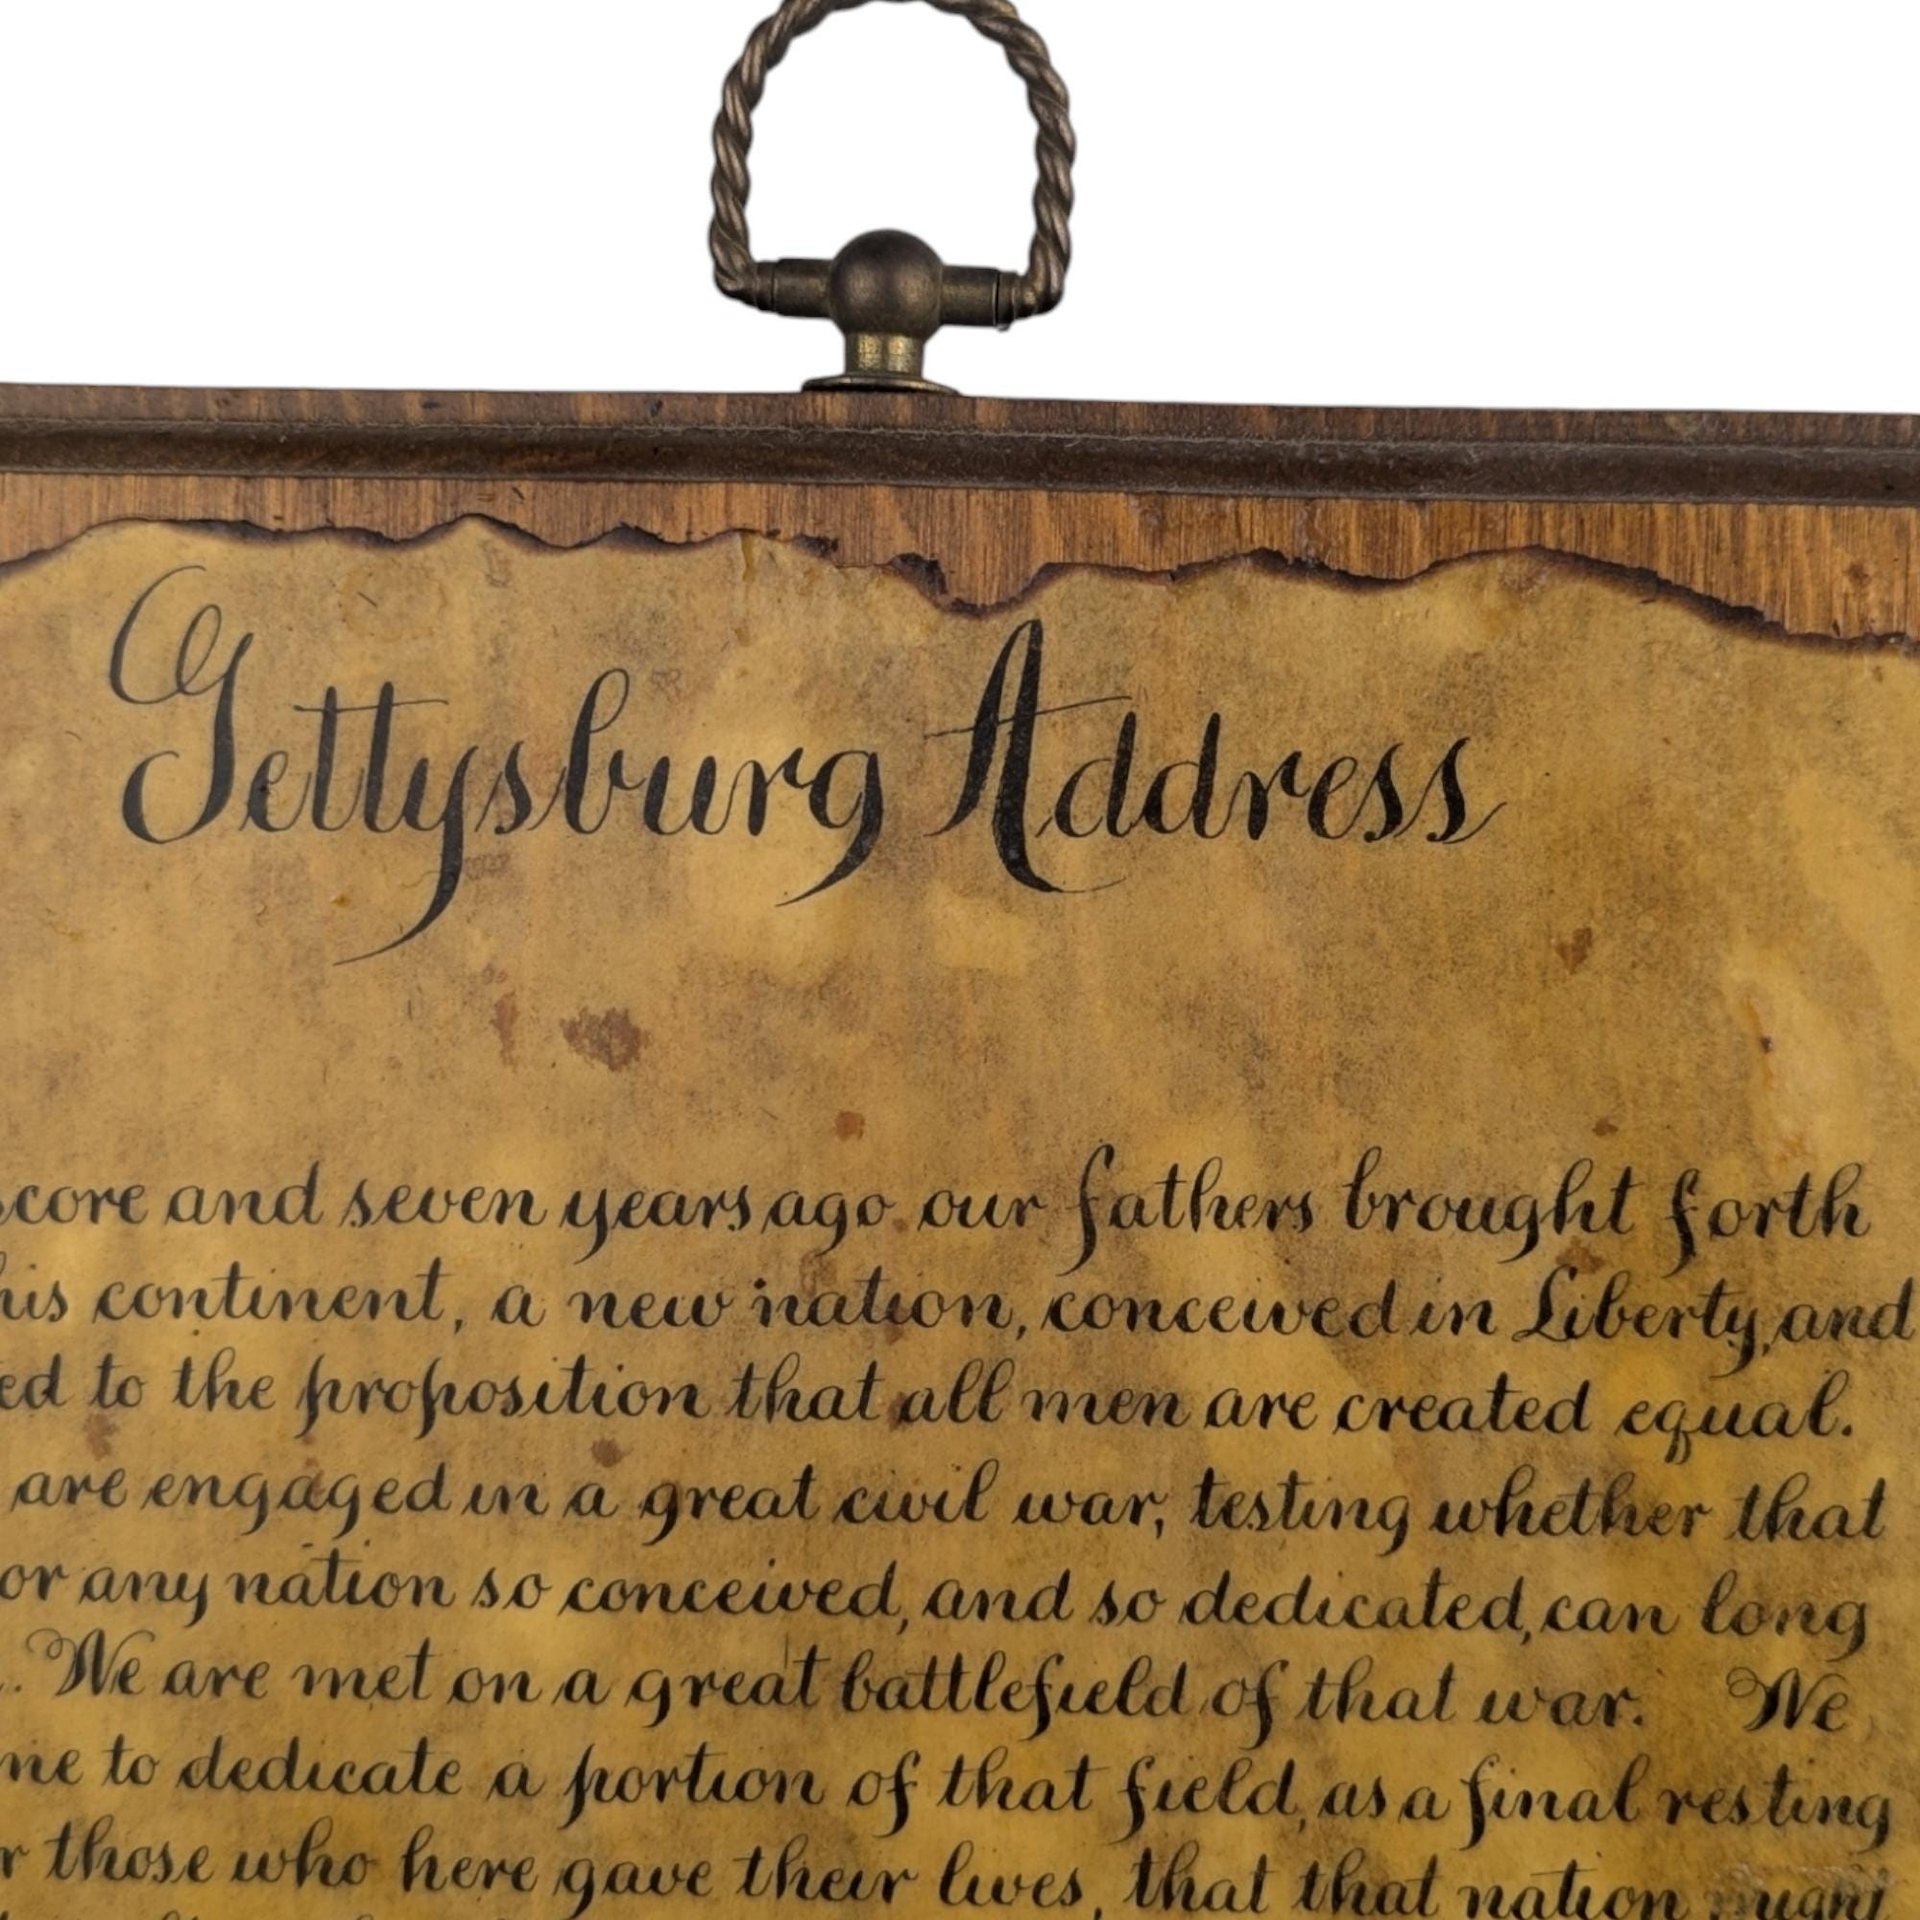 Gettysburg Address
score and seven years ago our fathers brought forth
his continent, a new nation, conceived in Liberty, and
ed to the proposition that all men are created equal.
are engaged in a great civil war, testing whether that
or any nation so conceived, and so dedicated, can long
. We are met on a great battlefield of that war. We
me to dedicate a portion of that field, as a final resting
r those who here gave their lives, that that nation might